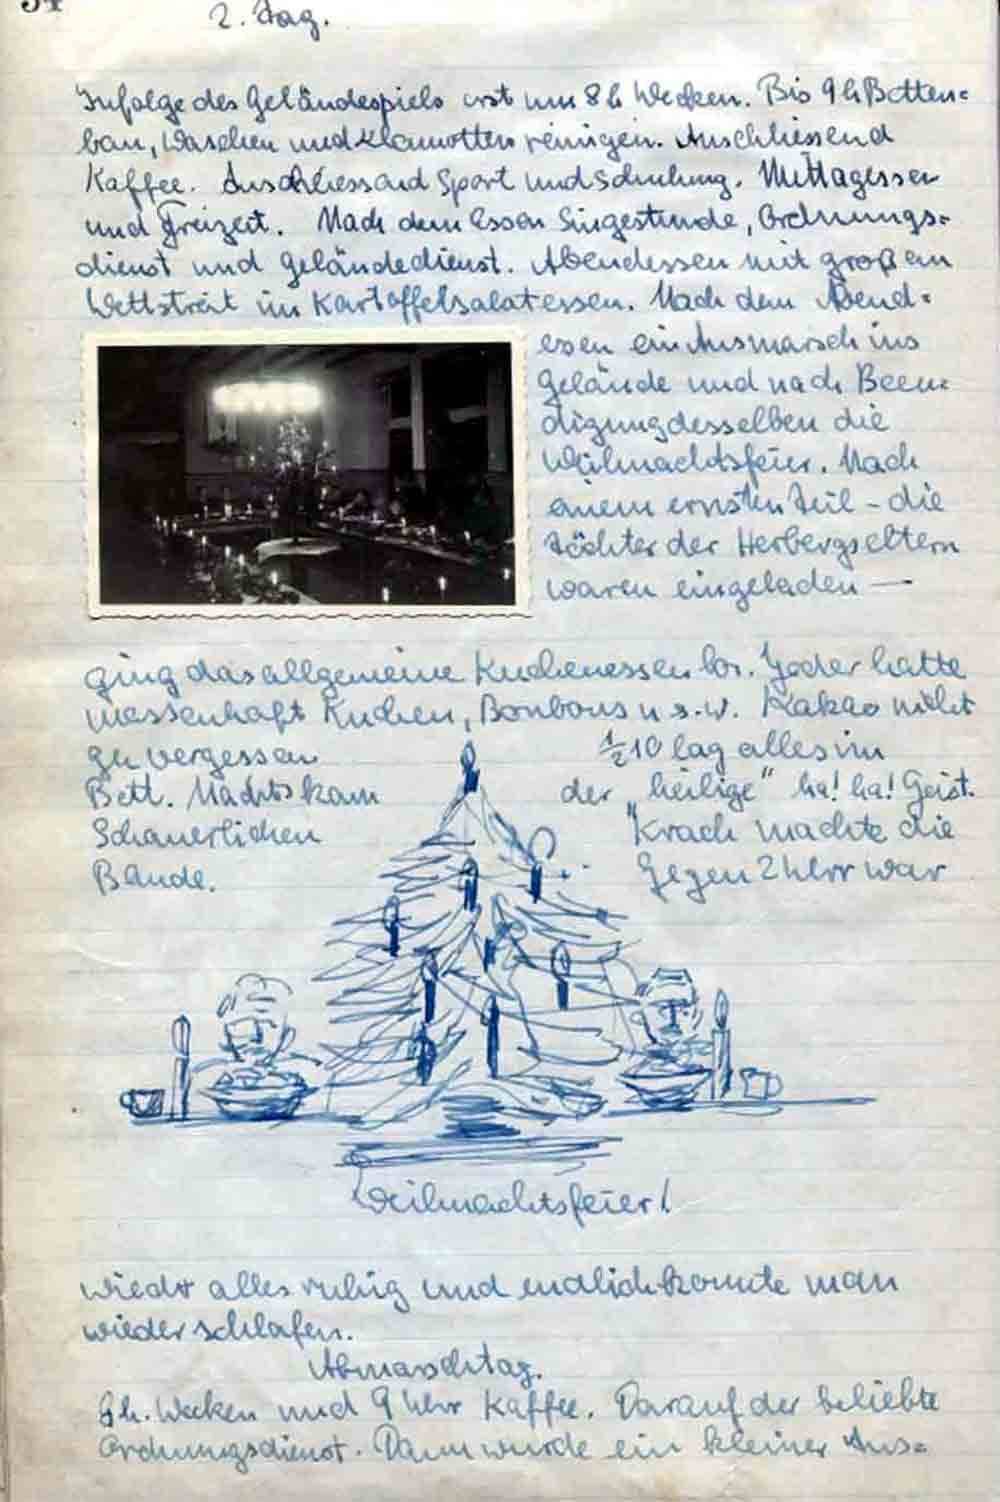 54
2. Tag.
Infolge des Geländespiels erst um 8 h Wecken. Bis 9 h Betten=
bau, Waschen und Klamotten reinigen. Anschliessend
Kaffee. Anschliessend Sport und Schulung. Mittagessen
und Freizeit. Nach dem Essen Singestunde, Ordnungs=
dienst und Geländedienst. Abendessen mit großem
Wettstreit im Kartoffelsalatessen. Nach dem Abend=
essen ein Ausmarsch ins
Gelände und nach Been=
digung desselben die
Weihnachtsfeier. Nach
einem ernsten Teil - die
Töchter der Herbergseltern
waren eingeladen —
ging das allgemeine Kuchenessen los. Jeder hatte
massenhaft Kuchen, Bonbons u.s.w. Kakao nicht
zu vergessen ½10 lag alles im
Bett. Nachts kam der "heilige" ha! ha! Geist.
Schauerlichen Krach machte die
Bande. Gegen 2 Uhr war
Weihnachtsfeier!
wieder alles ruhig und endlich konnte man
wieder schlafen.
Abmarschtag.
8 h. Wecken und 9 Uhr Kaffee. Darauf der beliebte
Ordnungsdienst. Dann wurde ein kleiner Aus=